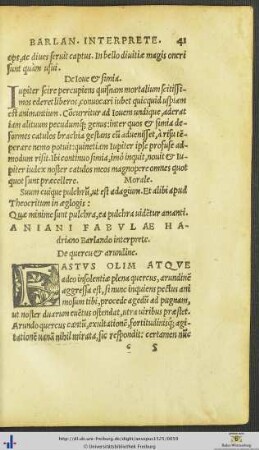 BARLAN. INTERPRETE. 41
eps, ac diues seruit captus. In bello diuitiæ magis oneri
sunt quàm usui.
De Ioue & simia.
Iupiter scire percupiens quisnam mortalium scitissi=
mos ederet liberos, conuocari iubet quicquid uspiam
est animantium. Cōcurritur ad Iouem undique, aderat
iam alitum pecudumq́ue genus: inter quos & simia de=
formes catulos brachio gestans cū aduenisset, à risu tē
perare nemo potuit: quinetiam Iupiter ipse profusè ad
modum risit. Ibi continuò simia, imò inquit, nouit & Iu=
piter iudex noster catulos meos magnopere omnes quot
quot sunt præcellere. Morale.
Suum cuique pulchrū, ut est adagium. Et alibi apud
Theocritum in æglogis:
Quæ minimè sunt pulchra, ea pulchra uidētur amanti.
ANIANI FABVLAE HA-
driano Barlando interprete.
De quercu & arundine.
FASTVS OLIM ATQVE
adeo insolentiæ plena quercus, arundinē
aggressa est, si nunc inquiens pectus ani
mosum tibi, procede agedū ad pugnam,
ut noster duarum euētus ostendat, utra uiribus præstet.
Arundo quercus tantū, exultationē, fortitudinisq́ue agi
tationē uanā nihil mirata, sic respondit: certamen nūc
c 5
http://dl.ub.uni-freiburg.de/diglit/aesopus1521/0059
© Universitätsbibliothek Freiburg